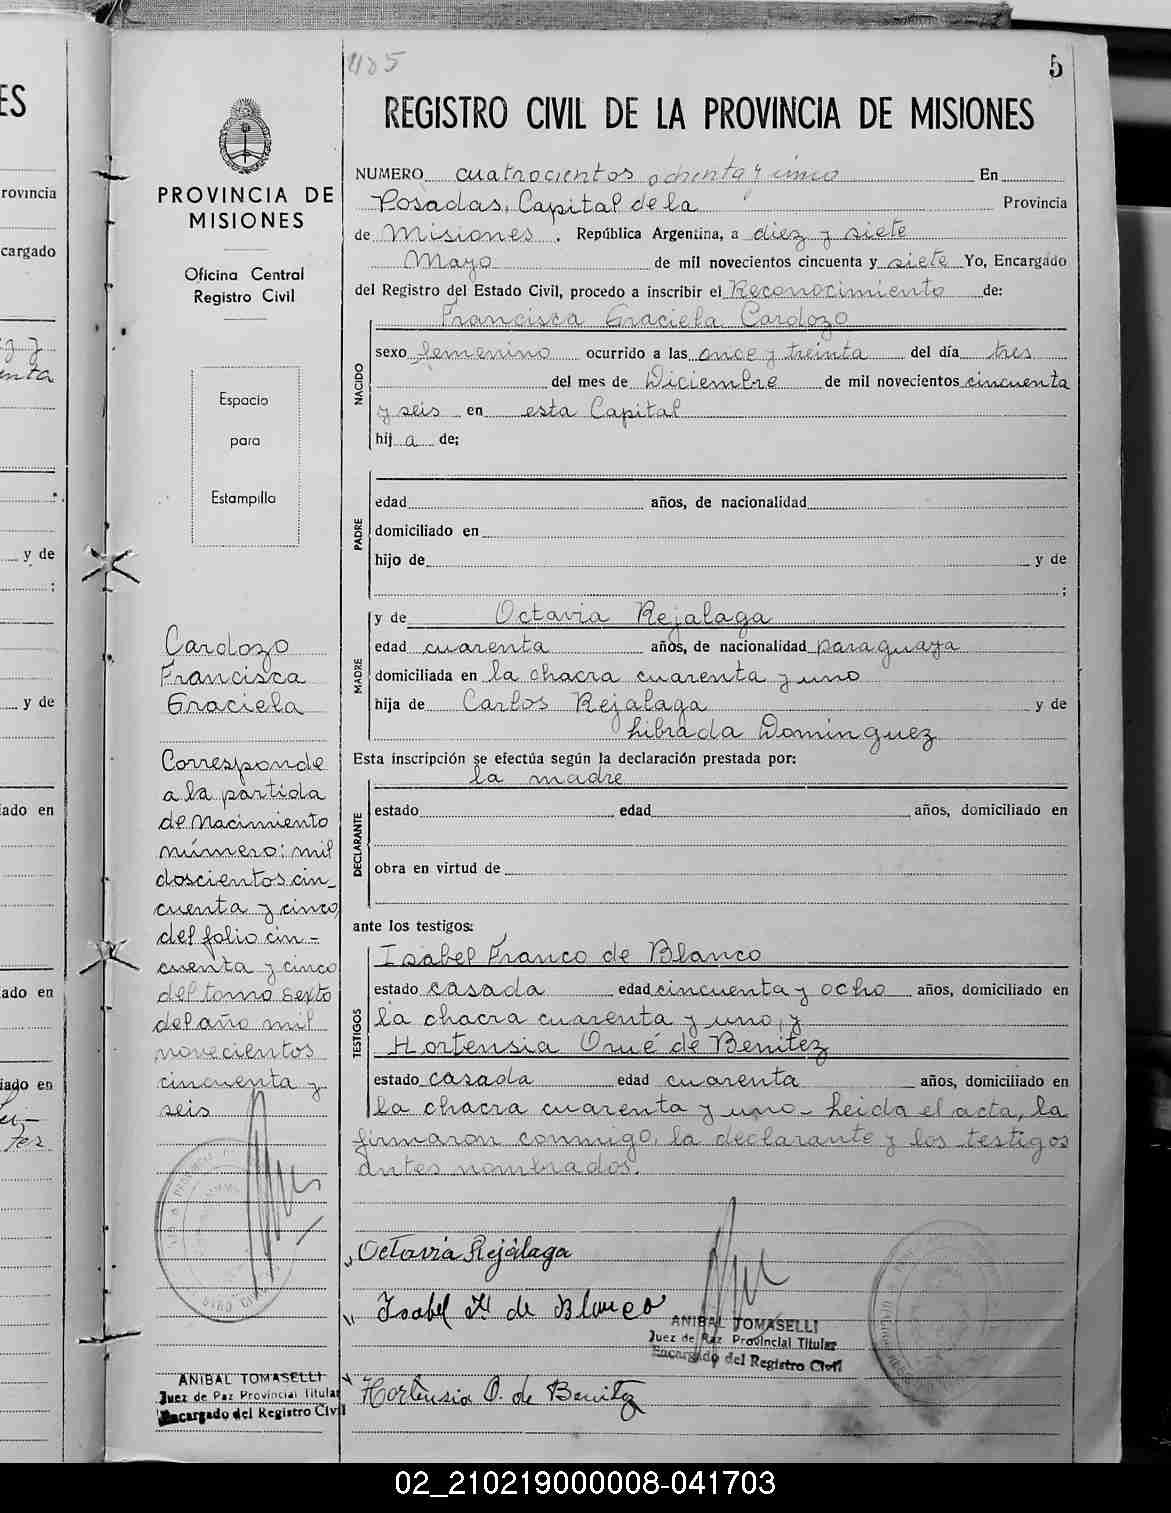 485
5
REGISTRO CIVIL DE LA PROVINCIA DE MISIONES
PROVINCIA DE
MISIONES
Oficina Central
Registro Civil
Espacio
para
Estampilla
NUMERO cuatrocientos ochenta y cinco En
Posadas, Capital de la Provincia
de Misiones. República Argentina, a diez y siete
Mayo de mil novecientos cincuenta y siete Yo, Encargado
del Registro del Estado Civil, procedo a inscribir el Reconocimiento de:
Francisca Graciela Cardozo
NACIDO
sexo femenino ocurrido a las once y treinta del día tres
del mes de Diciembre de mil novecientos cincuenta
y seis en esta Capital
hij a de;
PADRE
edad años, de nacionalidad
domiciliado en
hijo de y de
;
MADRE
y de Octavia Rejalaga
edad cuarenta años, de nacionalidad paraguaya
domiciliada en la chacra cuarenta y uno
hija de Carlos Rejalaga y de
Librada Dominguez
Esta inscripción se efectúa según la declaración prestada por:
la madre
DECLARANTE
estado edad años, domiciliado en
obra en virtud de
ante los testigos:
TESTIGOS
Isabel Franco de Blanco
estado casada edad cincuenta y ocho años, domiciliado en
la chacra cuarenta y uno, y
Hortensia Orué de Benitez
estado casada edad cuarenta años, domiciliado en
la chacra cuarenta y uno - Leida el acta, la
firmaron conmigo, la declarante y los testigos
antes nombrados.
Octavia Rejálaga
Isabel F. de Blanco
Hortensia O. de Benitez
ANIBAL TOMASELLI
Juez de Paz Provincial Titular
Encargado del Registro Civil
Cardozo
Francisca
Graciela
Corresponde
a la partida
de Nacimiento
número: mil
doscientos cin-
cuenta y cinco
del folio cin-
cuenta y cinco
del tomo sexto
del año mil
novecientos
cincuenta y
seis
ANIBAL TOMASELLI
Juez de Paz Provincial Titular
Encargado del Registro Civil
ES
rovincia
cargado
y de
;
y de
iado en
ado en
iado en
02_210219000008-041703